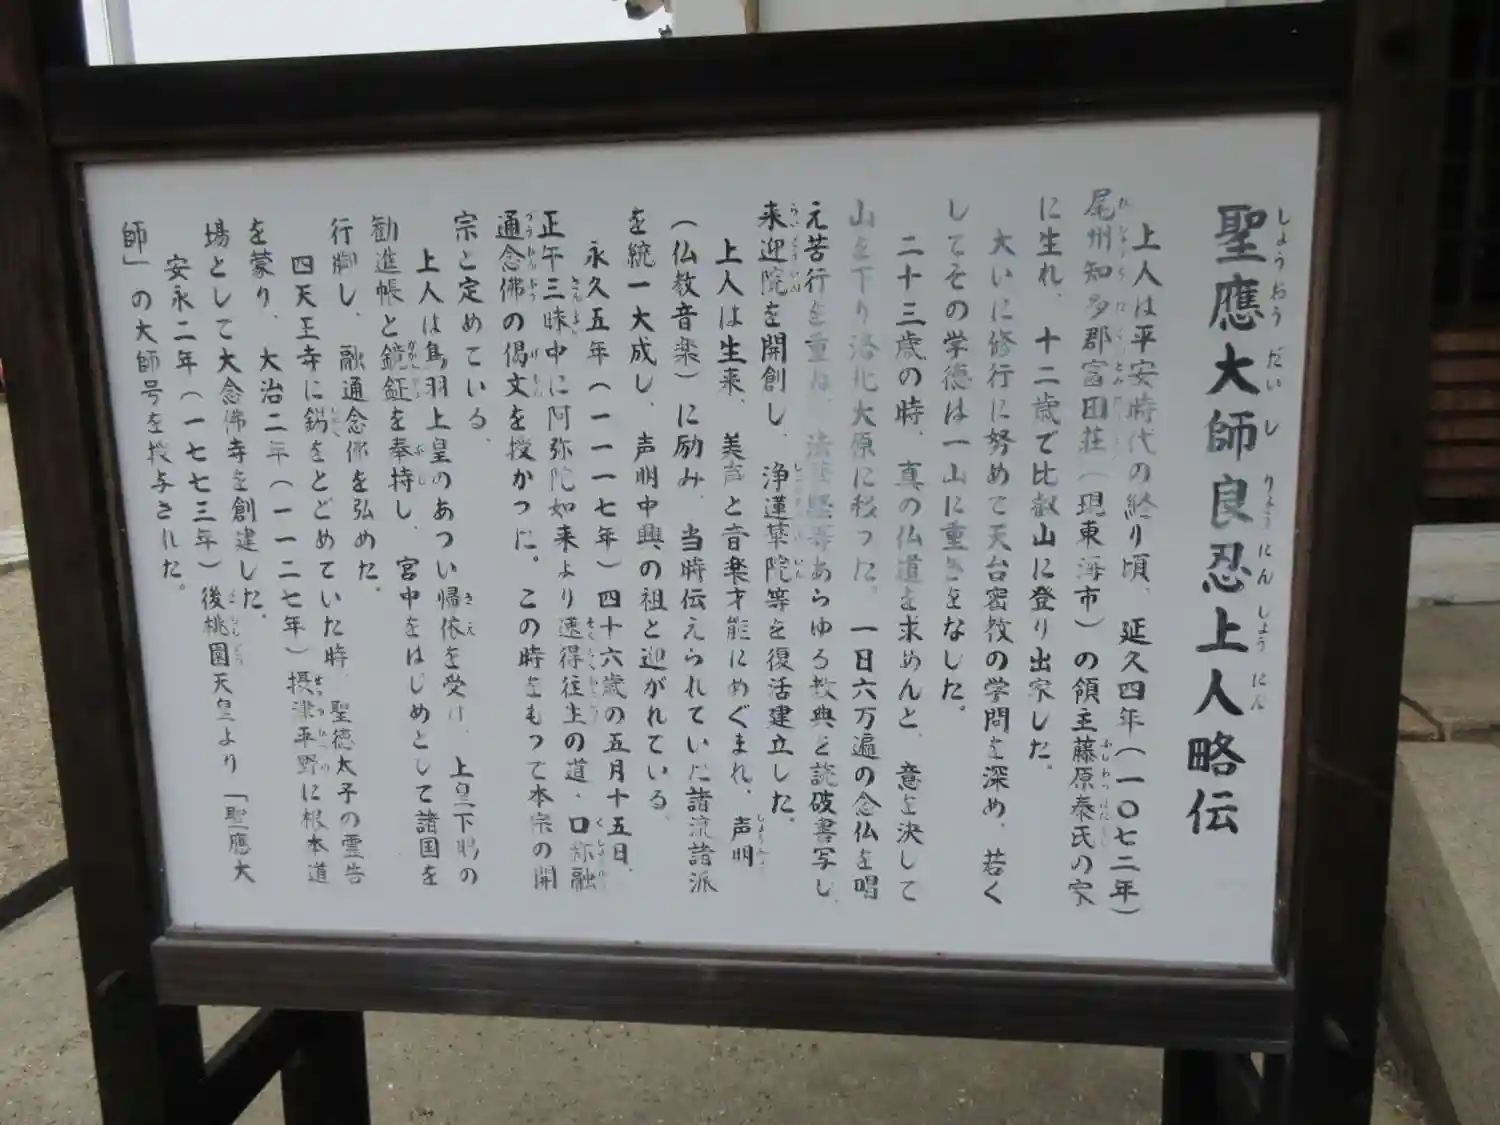 聖應大師良忍上人略伝
しょうおうだいしりょうにんしょうにん
上人は平安時代の終り頃、延久四年(一〇七二年)
尾州知多郡富田荘(現東海市)の領主藤原泰氏の家
に生れ、十二歳で比叡山に登り出家した。
大いに修行に努めて天台密教の学問を深め、若く
してその学徳は一山に重きをなした。
二十三歳の時、真の仏道を求めんと、意を決して
山を下り洛北大原に移った。一日六万遍の念仏を唱
え苦行を重ね、法華経等あらゆる教典を読破書写し、
来迎院を開創し、浄蓮華院等を復活建立した。
上人は生来、美声と音楽才能にめぐまれ、声明
(仏教音楽)に励み、当時伝えられていた諸流諸派
を統一大成し、声明中興の祖と迎がれている。
永久五年(一一一七年)四十六歳の五月十五日、
正午三昧中に阿弥陀如来より速得往生の道・口称融
通念佛の偈文を授かった。この時をもって本宗の開
宗と定めている。
上人は鳥羽上皇のあつい帰依を受け、上皇下賜の
勧進帳と鏡鉦を奉持し、宮中をはじめとして諸国を
行脚し、融通念佛を弘めた。
四天王寺に錫をとどめていた時、聖徳太子の霊告
を蒙り、大治二年(一一二七年)摂津平野に根本道
場として大念佛寺を創建した。
安永二年(一七七三年)後桃園天皇より「聖應大
師」の大師号を授与された。